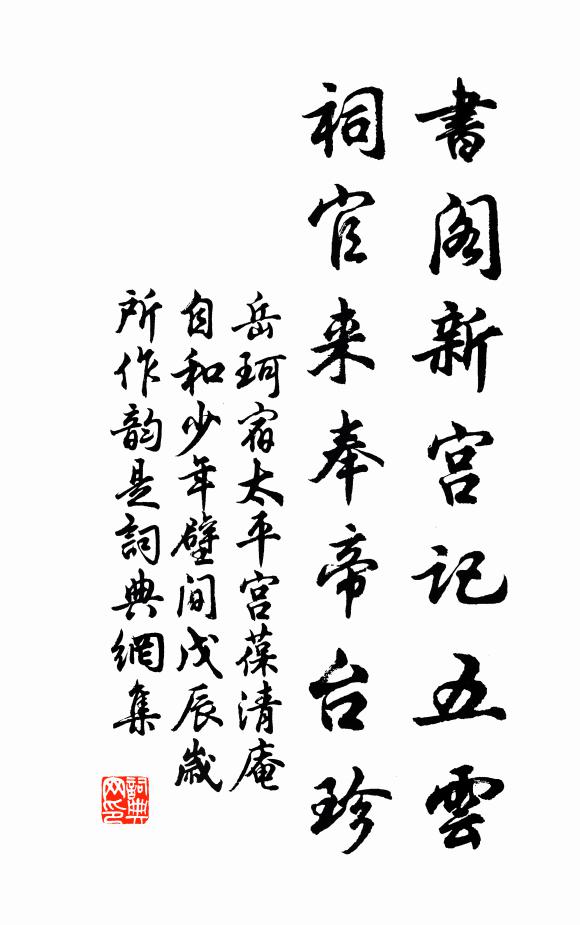 書阁新宫记五雲
祠官来奉帝台珍
岳珂宿太平宫葆清庵
自和少年壁间戊辰歲
所作韵是詞典網集
詞典网印